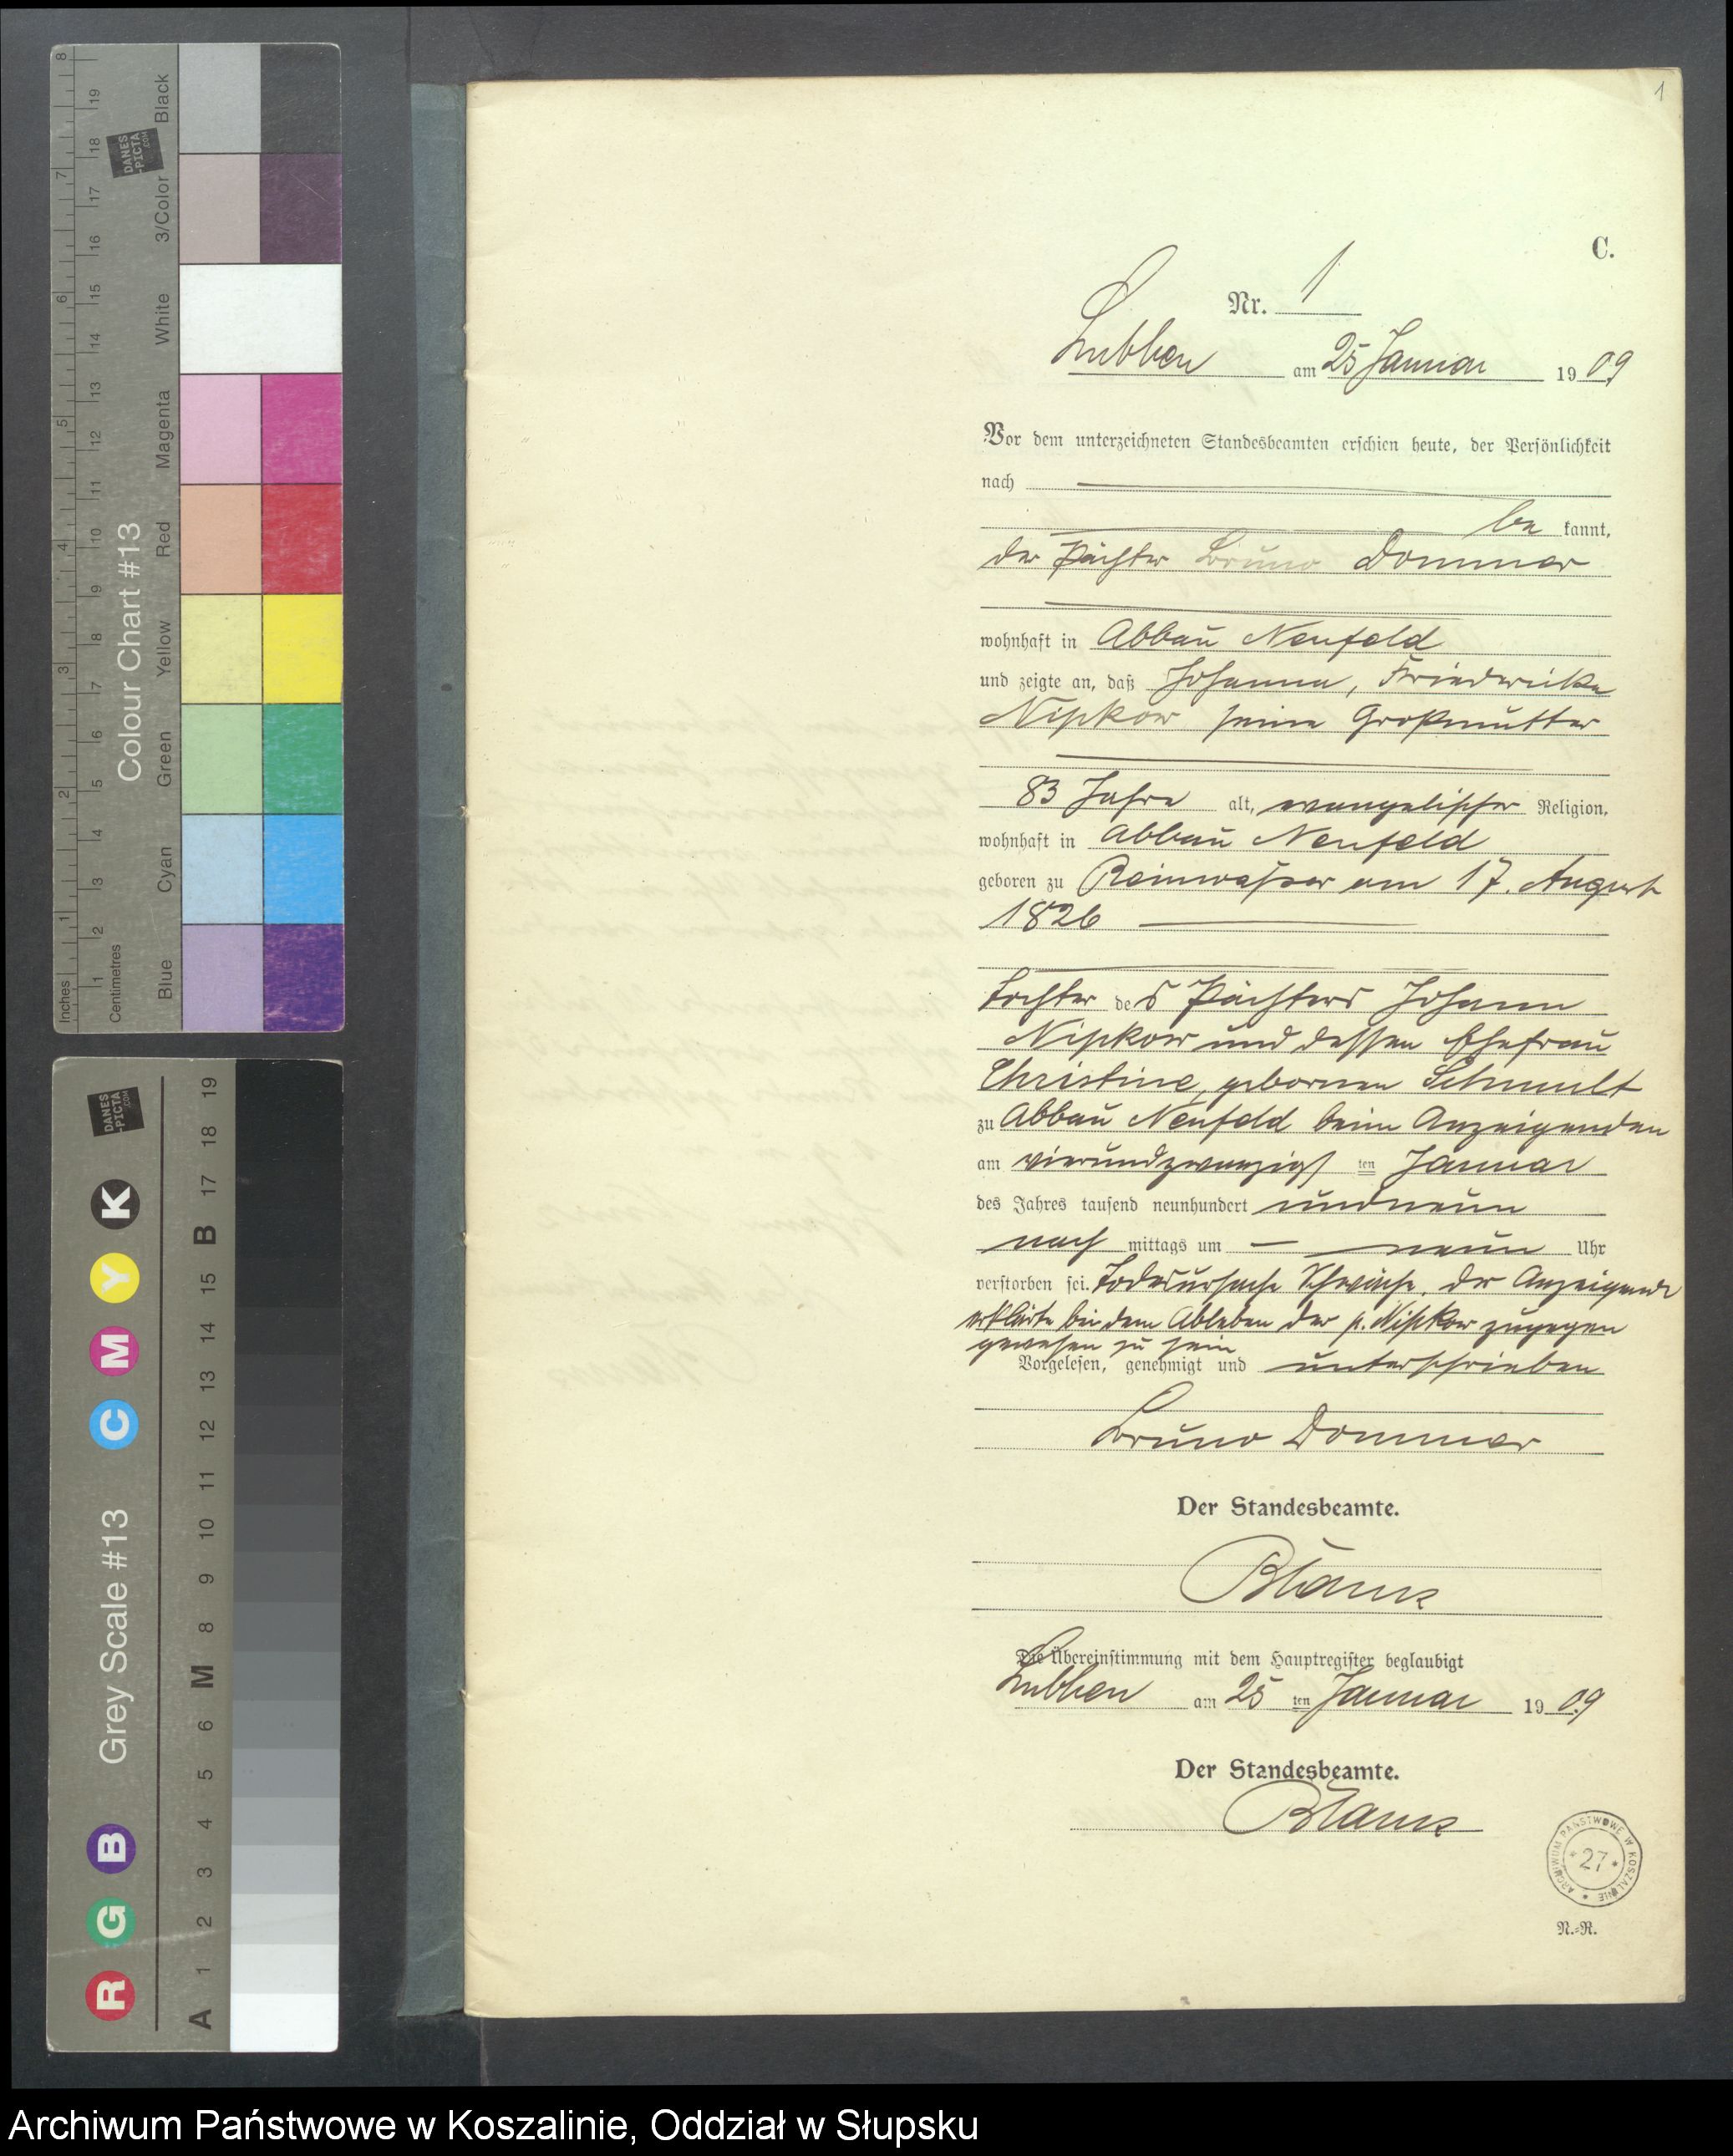 1
C.
Nr. 1
Lubben am 25 Januar 1909
Vor dem unterzeichneten Standesbeamten erschien heute, der Persönlichkeit
nach
be kannt,
der Pächter Bruno Dommer
wohnhaft in Abbau Neufeld
und zeigte an, daß Johanna, Friedericke
Nipkow seine Großmutter
83 Jahre alt, evangelischer Religion,
wohnhaft in Abbau Neufeld
geboren zu Reinwasser am 17. August
1826
Tochter des Pächters Johann
Nipkow und dessen Ehefrau
Christine, gebornen
zu Abbau Neufeld beim Anzeigenden
am vierundzwanzigsten Januar
des Jahres tausend neunhundert undneun
nach mittags um neun Uhr
verstorben sei. Todesursache Schwäche. Der Anzeigende
erklärte bei dem Ableben der p. Nipkow zugegen
gewesen zu sein
Vorgelesen, genehmigt und unterschrieben
Bruno Dommer
Der Standesbeamte.
Die Übereinstimmung mit dem Hauptregister beglaubigt
Lubben am 25 ten Januar 1909
Der Standesbeamte.
ARCHIWUM PAŃSTWOWE W KOSZALINIE
* 27 *
N.=R.
Colour Chart #13
Inches 1 2 3 4 5 6 7 8
Centimetres 1 2 3 4 5 6 7 8 9 10 11 12 13 14 15 16 17 18 19
Blue Cyan Green Yellow Red Magenta White 3/Color Black
DANES
-PICTA
.COM
Grey Scale #13
R G B C M Y K
A 1 2 3 4 5 6 M 8 9 10 11 12 13 14 15 B 17 18 19
DANES
-PICTA
.COM
Archiwum Państwowe w Koszalinie, Oddział w Słupsku